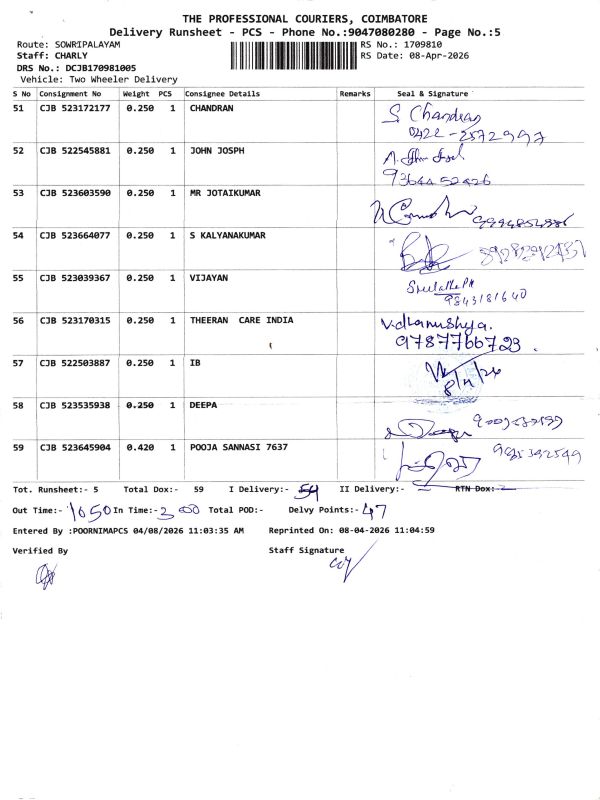 THE PROFESSIONAL COURIERS, COIMBATORE
Delivery Runsheet - PCS - Phone No.:9047080280 - Page No.:5
Route: SOWRIPALAYAM RS No.: 1709810
Staff: CHARLY RS Date: 08-Apr-2026
DRS No.: DCJB170981005
Vehicle: Two Wheeler Delivery
S No Consignment No Weight PCS Consignee Details Remarks Seal & Signature
51 CJB 523172177 0.250 1 CHANDRAN S Chandran
0422-2572997
52 CJB 522545881 0.250 1 JOHN JOSPH
9364452426
53 CJB 523603590 0.250 1 MR JOTAIKUMAR
54 CJB 523664077 0.250 1 S KALYANAKUMAR
55 CJB 523039367 0.250 1 VIJAYAN
9843181640
56 CJB 523170315 0.250 1 THEERAN CARE INDIA V.dhanushya.
9787766723.
57 CJB 522503887 0.250 1 IB
58 CJB 523535938 0.250 1 DEEPA
59 CJB 523645904 0.420 1 POOJA SANNASI 7637
Tot. Runsheet:- 5 Total Dox:- 59 I Delivery:- 54 II Delivery:- RTN Dox:- 2
Out Time:- 1050 In Time:- 300 Total POD:- Delvy Points:- 47
Entered By :POORNIMAPCS 04/08/2026 11:03:35 AM Reprinted On: 08-04-2026 11:04:59
Verified By Staff Signature